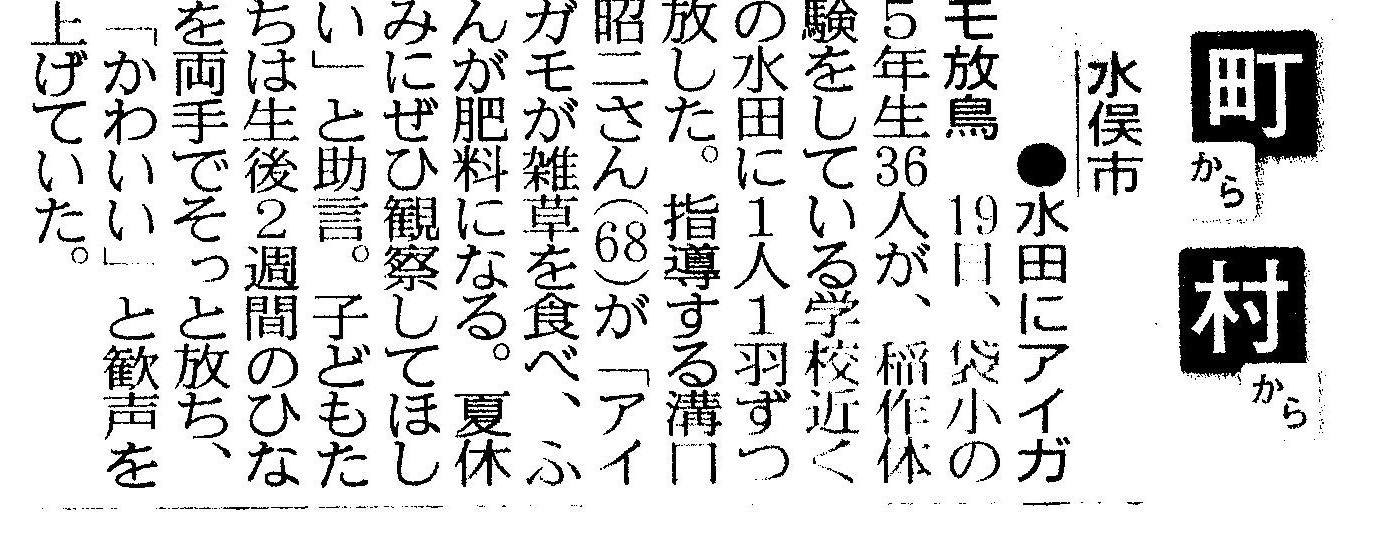 町から
村から
水俣市
●水田にアイガ
モ放鳥　19日、袋小の
5年生36人が、稲作体
験をしている学校近く
の水田に1人1羽ずつ
放した。指導する溝口
昭二さん(68)が「アイ
ガモが雑草を食べ、ふ
んが肥料になる。夏休
みにぜひ観察してほし
い」と助言。子どもた
ちは生後2週間のひな
を両手でそっと放ち、
「かわいい」と歓声を
上げていた。